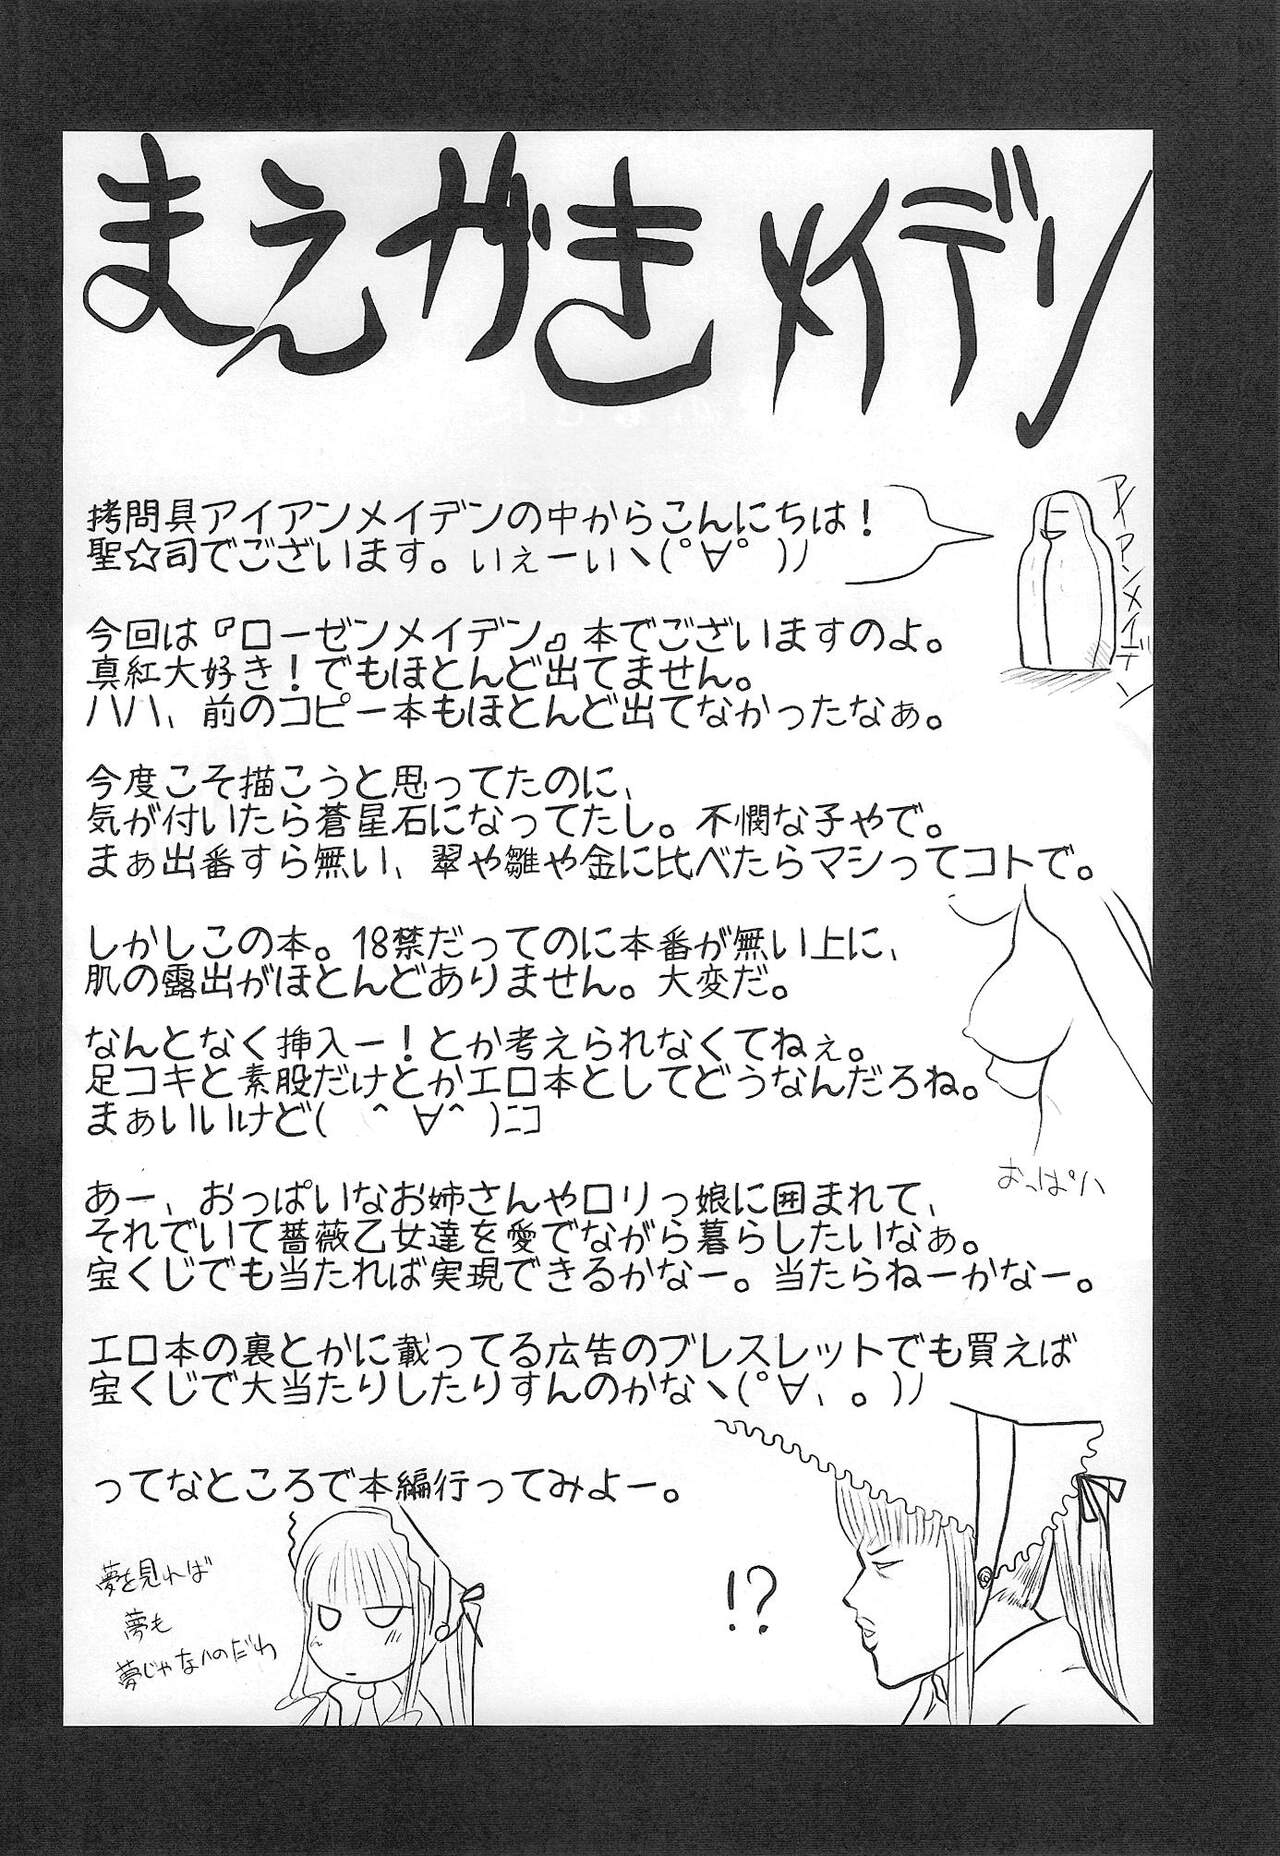 まえがきメイデン
拷問具アイアンメイデンの中からこんにちは！
聖☆司でございます。いぇーいヽ(ﾟ∀ﾟ)ﾉ
アイアンメイデン
今回は『ローゼンメイデン』本でございますのよ。
真紅大好き！でもほとんど出てません。
ハハ、前のコピー本もほとんど出てなかったなぁ。
今度こそ描こうと思ってたのに、
気が付いたら蒼星石になってたし。不憫な子やで。
まぁ出番すら無い、翠や雛や金に比べたらマシってコトで。
しかしこの本。18禁だってのに本番が無い上に、
肌の露出がほとんどありません。大変だ。
なんとなく挿入ー！とか考えられなくてねぇ。
足コキと素股だけとかエロ本としてどうなんだろね。
まぁいいけど( ＾∀＾)ﾆｺ
おっぱい
あー、おっぱいなお姉さんやロリっ娘に囲まれて、
それでいて薔薇乙女達を愛でながら暮らしたいなぁ。
宝くじでも当たれば実現できるかなー。当たらねーかなー。
エロ本の裏とかに載ってる広告のブレスレットでも買えば
宝くじで大当たりしたりすんのかなヽ(ﾟ∀､｡)ﾉ
ってなところで本編行ってみよー。
夢を見れば
夢も
夢じゃないのだわ
!?